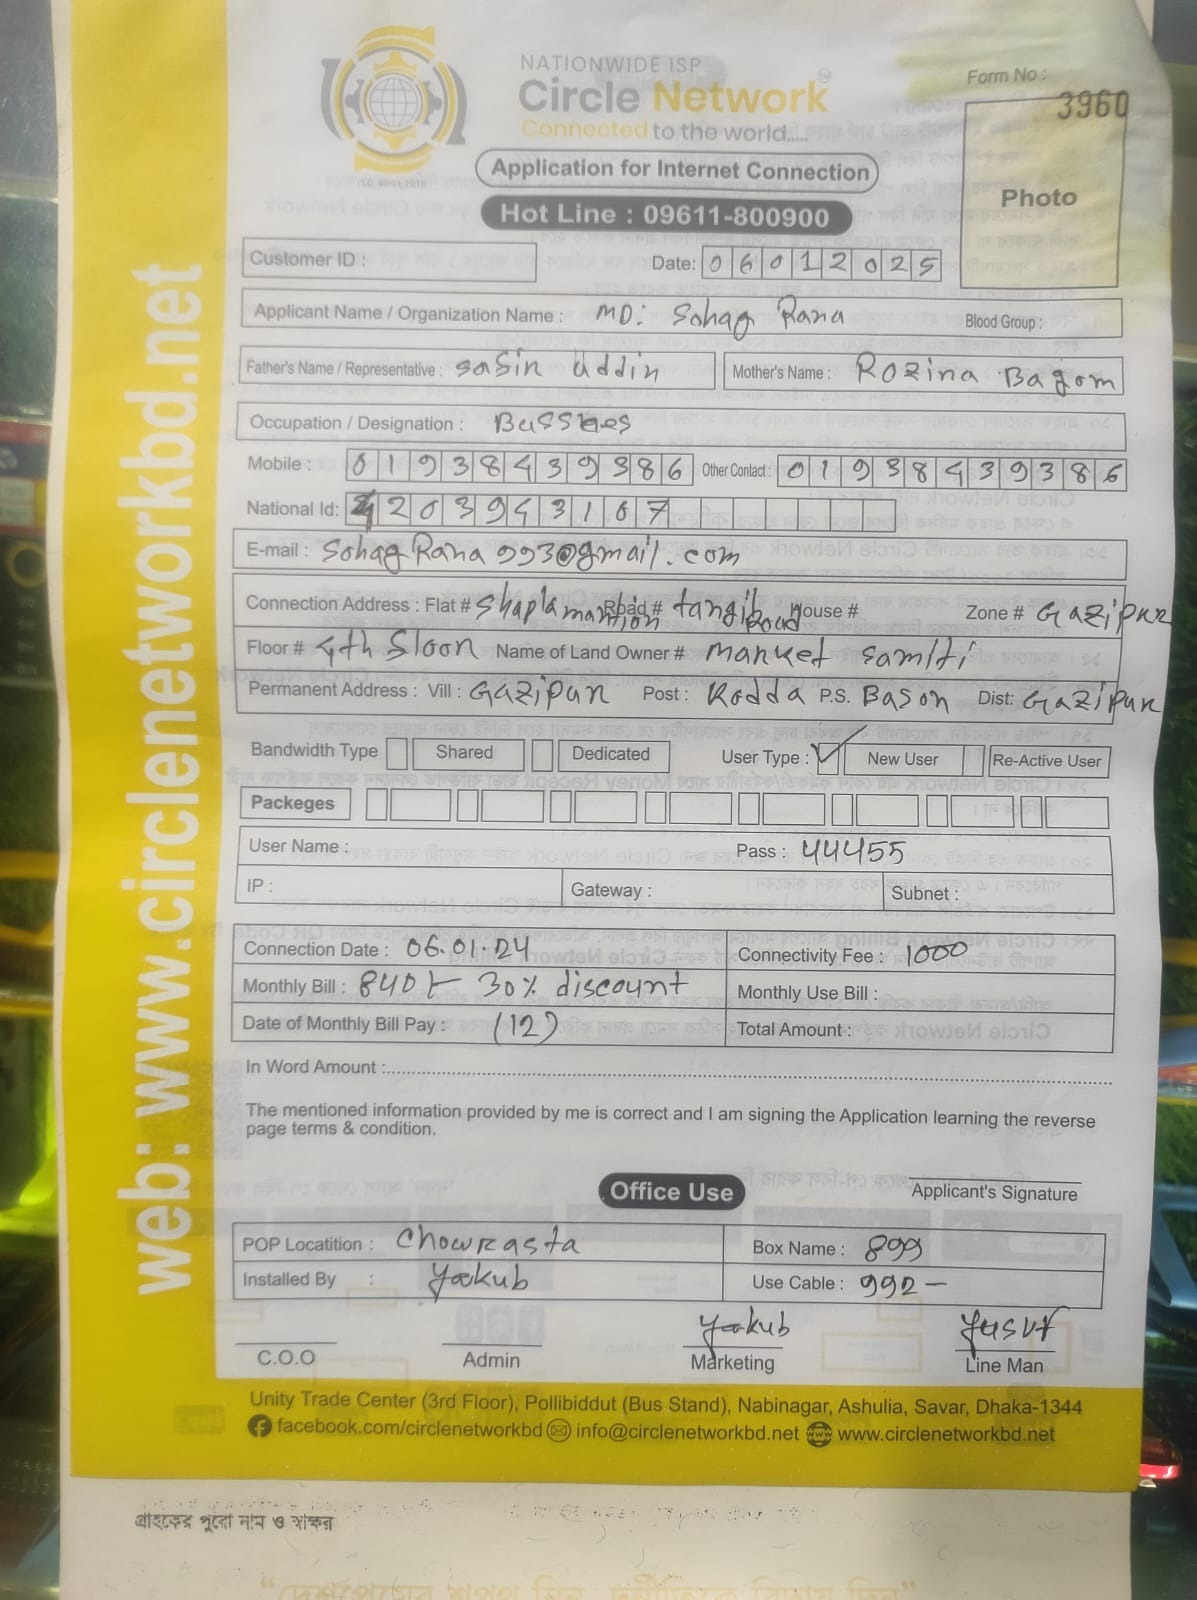 NATIONWIDE ISP
Circle Network™
Connected to the world.....
Form No :
3960
Photo
Application for Internet Connection
Hot Line : 09611-800900
Customer ID :
Date: 06012025
Applicant Name / Organization Name : MD: Sohag Rana Blood Group :
Father's Name / Representative : Sabin Uddin Mother's Name : Rozina Bagom
Occupation / Designation :
Mobile : 01938439386 Other Contact : 01938439386
National Id: 4203943167
E-mail : SohagRana993@gmail.com
Connection Address : Flat # Shapla mantion Road # tangil Road House # Zone # Gazipur
Floor # 4th Sloon Name of Land Owner # Market Samiti
Permanent Address : Vill : Gazipur Post : Kodda P.S. Bason Dist: Gazipur
Bandwidth Type Shared Dedicated User Type : ✓ New User Re-Active User
Packeges
User Name : Pass : 44455
IP : Gateway : Subnet :
Connection Date : 06.01.24 Connectivity Fee : 1000
Monthly Bill : 840/- 30% discount Monthly Use Bill :
Date of Monthly Bill Pay : (12) Total Amount :
In Word Amount :
The mentioned information provided by me is correct and I am signing the Application learning the reverse
page terms & condition.
Office Use
Applicant's Signature
POP Locatition : Chowrasta Box Name : 899
Installed By : Yakub Use Cable : 992 –
Yakub Yusuf
C.O.O Admin Marketing Line Man
Unity Trade Center (3rd Floor), Pollibiddut (Bus Stand), Nabinagar, Ashulia, Savar, Dhaka-1344
facebook.com/circlenetworkbd info@circlenetworkbd.net www.circlenetworkbd.net
web: www.circlenetworkbd.net
গ্রাহকের পুরো নাম ও স্বাক্ষর